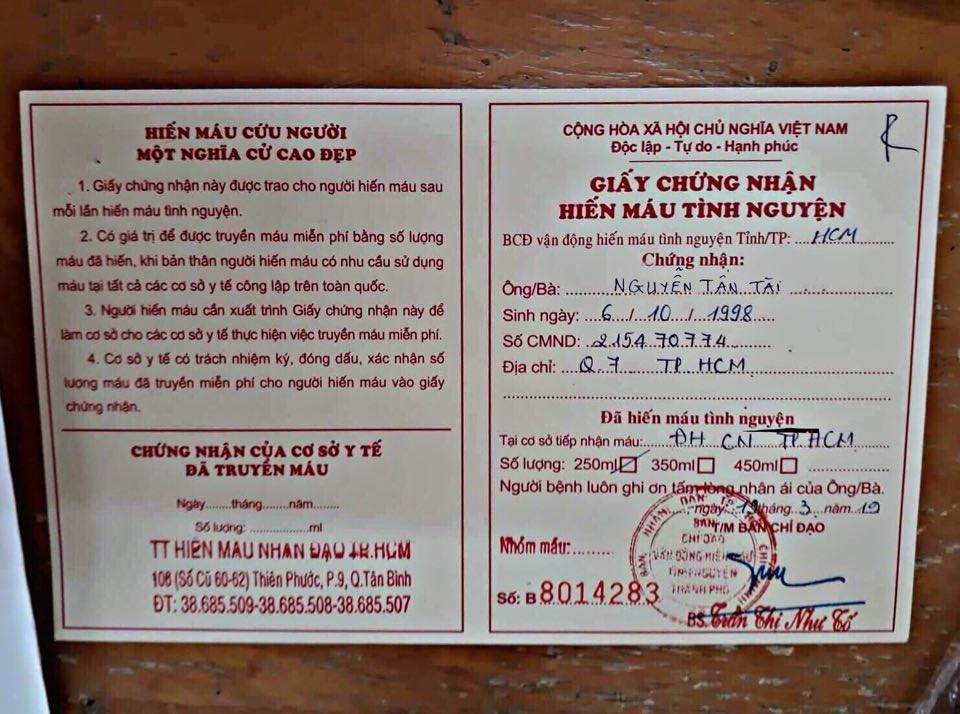 HIẾN MÁU CỨU NGƯỜI
MỘT NGHĨA CỬ CAO ĐẸP
1. Giấy chứng nhận này được trao cho người hiến máu sau
mỗi lần hiến máu tình nguyện.
2. Có giá trị để được truyền máu miễn phí bằng số lượng
máu đã hiến, khi bản thân người hiến máu có nhu cầu sử dụng
máu tại tất cả các cơ sở y tế công lập trên toàn quốc.
3. Người hiến máu cần xuất trình Giấy chứng nhận này để
làm cơ sở cho các cơ sở y tế thực hiện việc truyền máu miễn phí.
4. Cơ sở y tế có trách nhiệm ký, đóng dấu, xác nhận số
lượng máu đã truyền miễn phí cho người hiến máu vào giấy
chứng nhận.
CHỨNG NHẬN CỦA CƠ SỞ Y TẾ
ĐÃ TRUYỀN MÁU
Ngày........tháng.......năm.........
Số lượng: ...............ml
TT HIẾN MÁU NHÂN ĐẠO TP.HCM
106 (Số Cũ 60-62) Thiên Phước, P.9, Q.Tân Bình
ĐT: 38.685.509-38.685.508-38.685.507
CỘNG HÒA XÃ HỘI CHỦ NGHĨA VIỆT NAM
Độc lập - Tự do - Hạnh phúc
GIẤY CHỨNG NHẬN
HIẾN MÁU TÌNH NGUYỆN
BCĐ vận động hiến máu tình nguyện Tỉnh/TP: HCM
Chứng nhận:
Ông/Bà: NGUYỄN TẤN TÀI
Sinh ngày: 6 / 10 / 1998
Số CMND: 215470774
Địa chỉ: Q.7 TP HCM
Đã hiến máu tình nguyện
Tại cơ sở tiếp nhận máu: ĐH CN TP.HCM
Số lượng: 250ml 350ml 450ml
Người bệnh luôn ghi ơn tấm lòng nhân ái của Ông/Bà.
ngày 19 tháng 3 năm 19
T/M BAN CHỈ ĐẠO
BAN
CHỈ ĐẠO
VẬN ĐỘNG HIẾN MÁU
TÌNH NGUYỆN
THÀNH PHỐ
Nhóm máu:
Số: B 8014283
BS. Trần Thị Như Tố